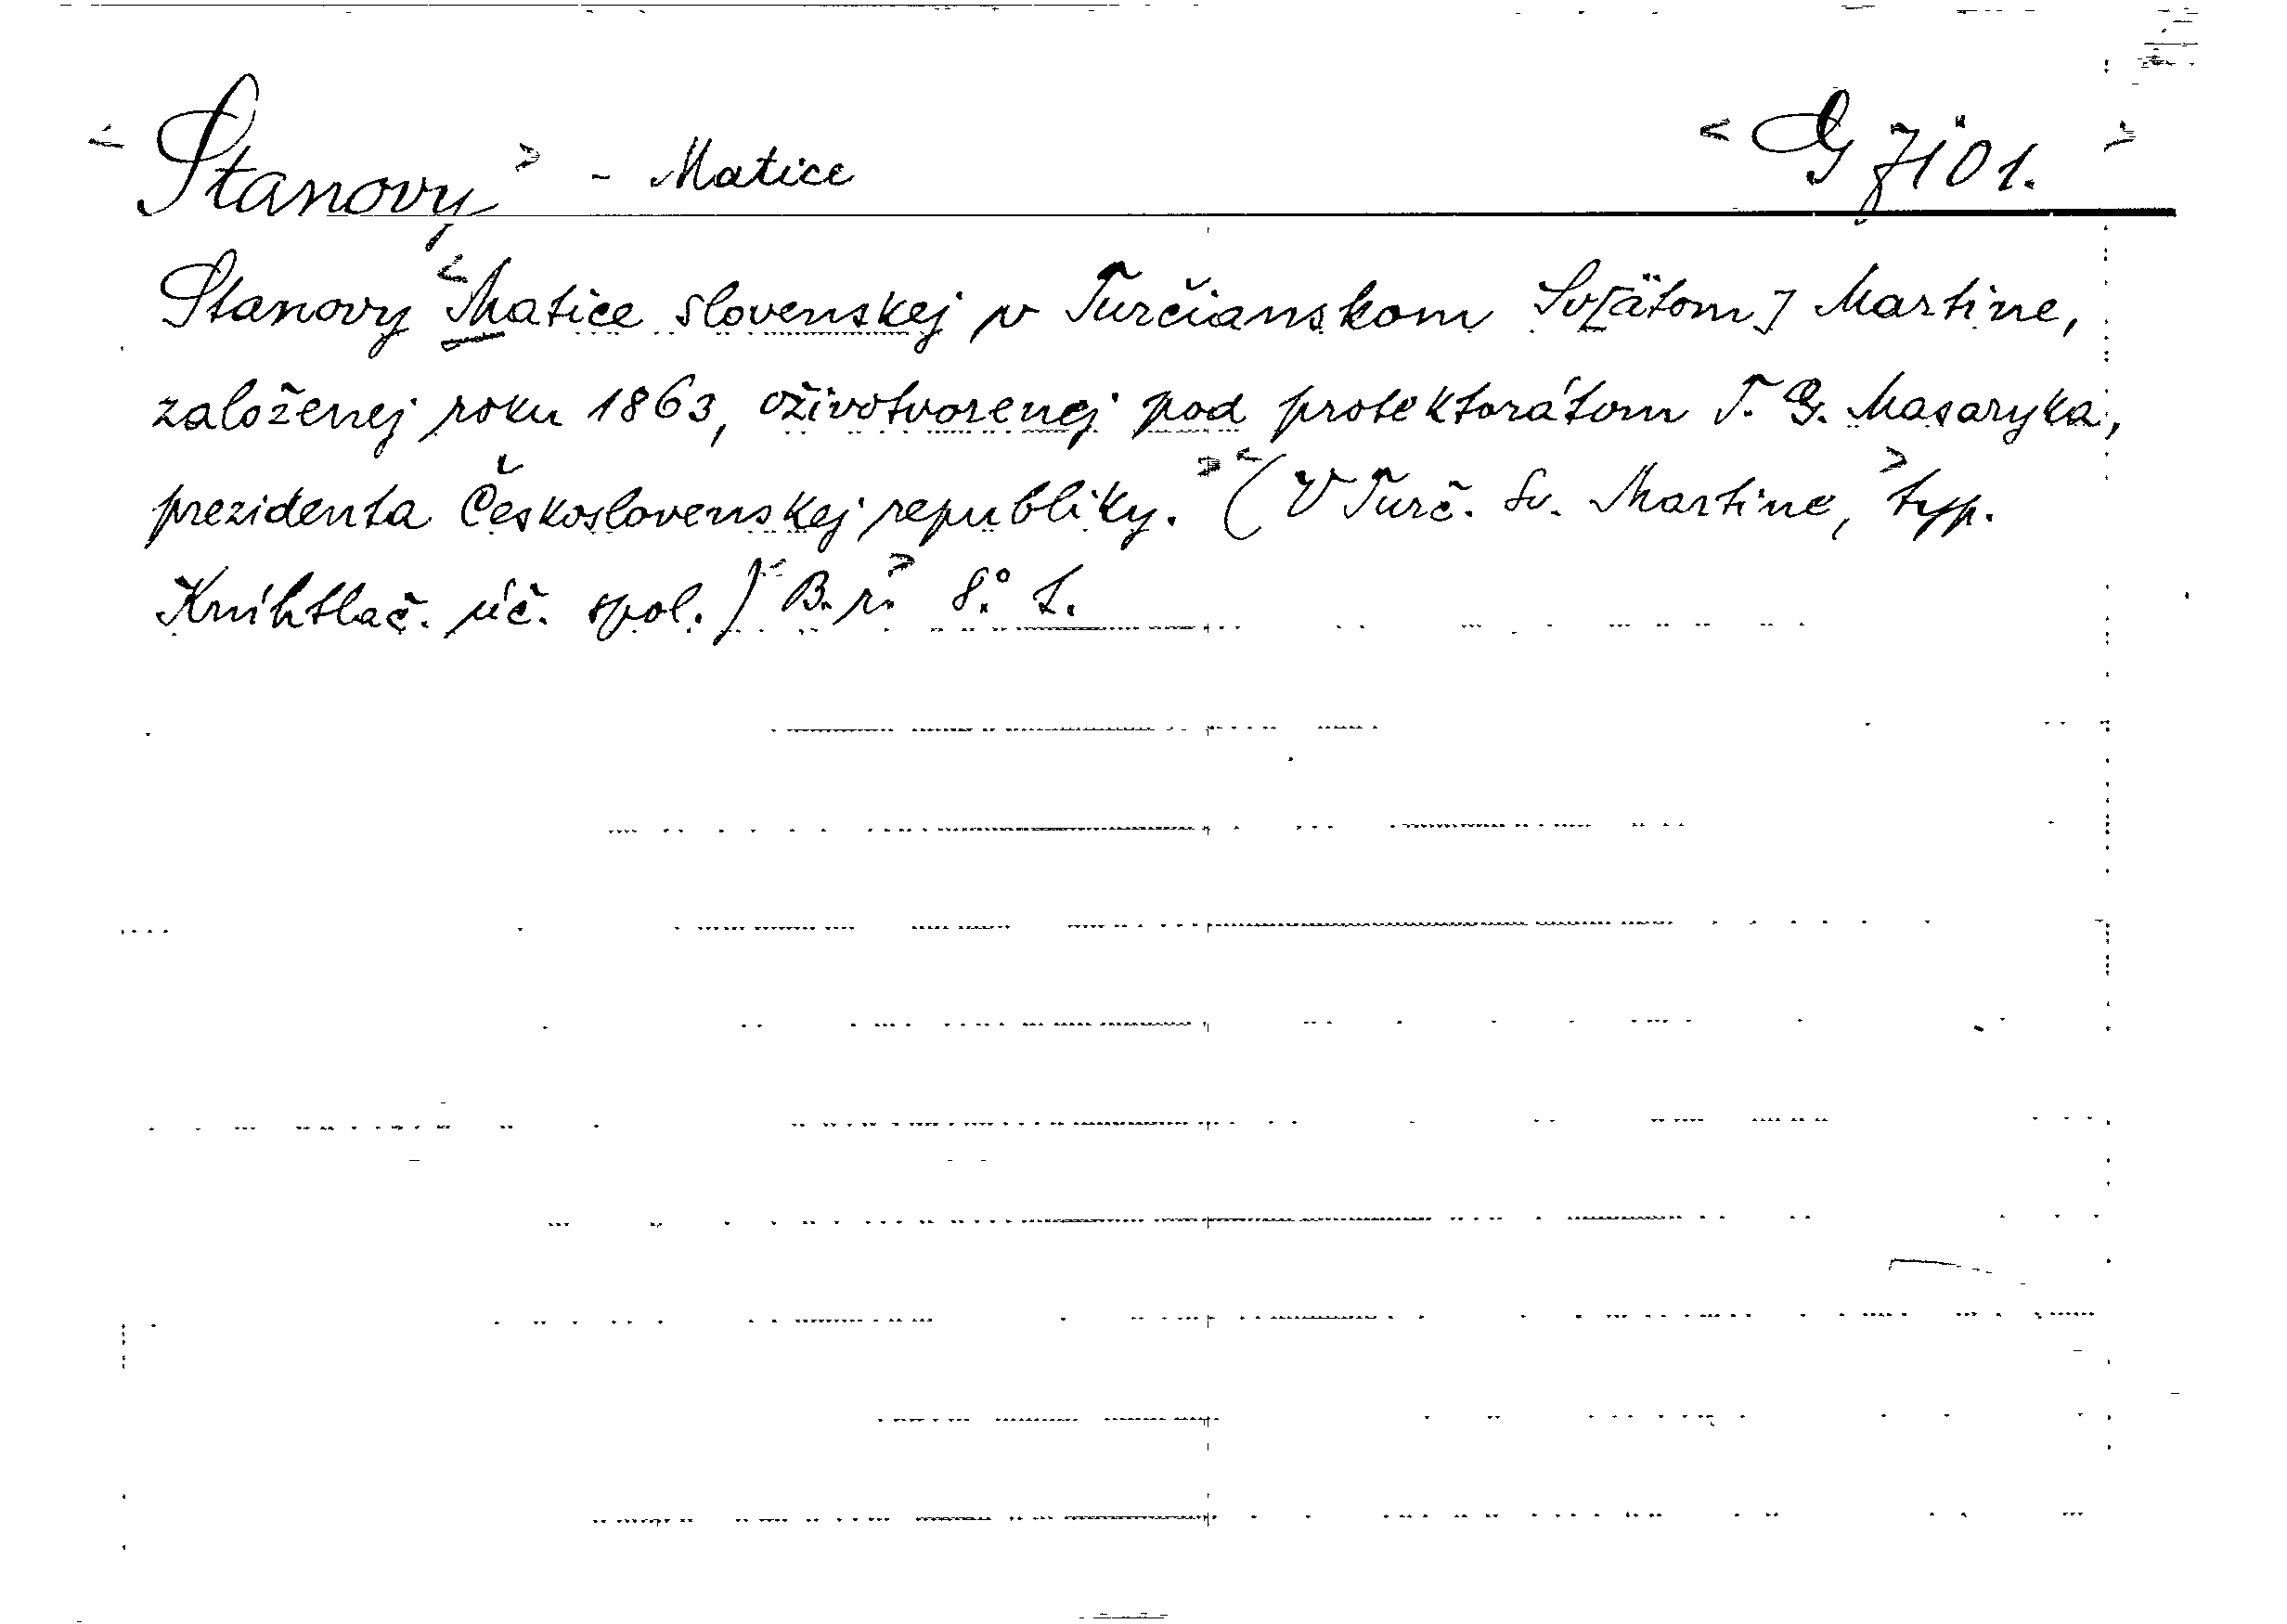 <Stanovy> - Matice <G 7101.>
Stanovy <Matice slovenskej v Turčianskom Sv[ätom] Martine,
založenej roku 1863, oživotvorenej pod protektorátom T. G. Masaryka,
prezidenta Československej republiky.> <(V Turč. Sv. Martine,> typ.
Kníhtlač. úč. spol.) <B. r.> 8.°